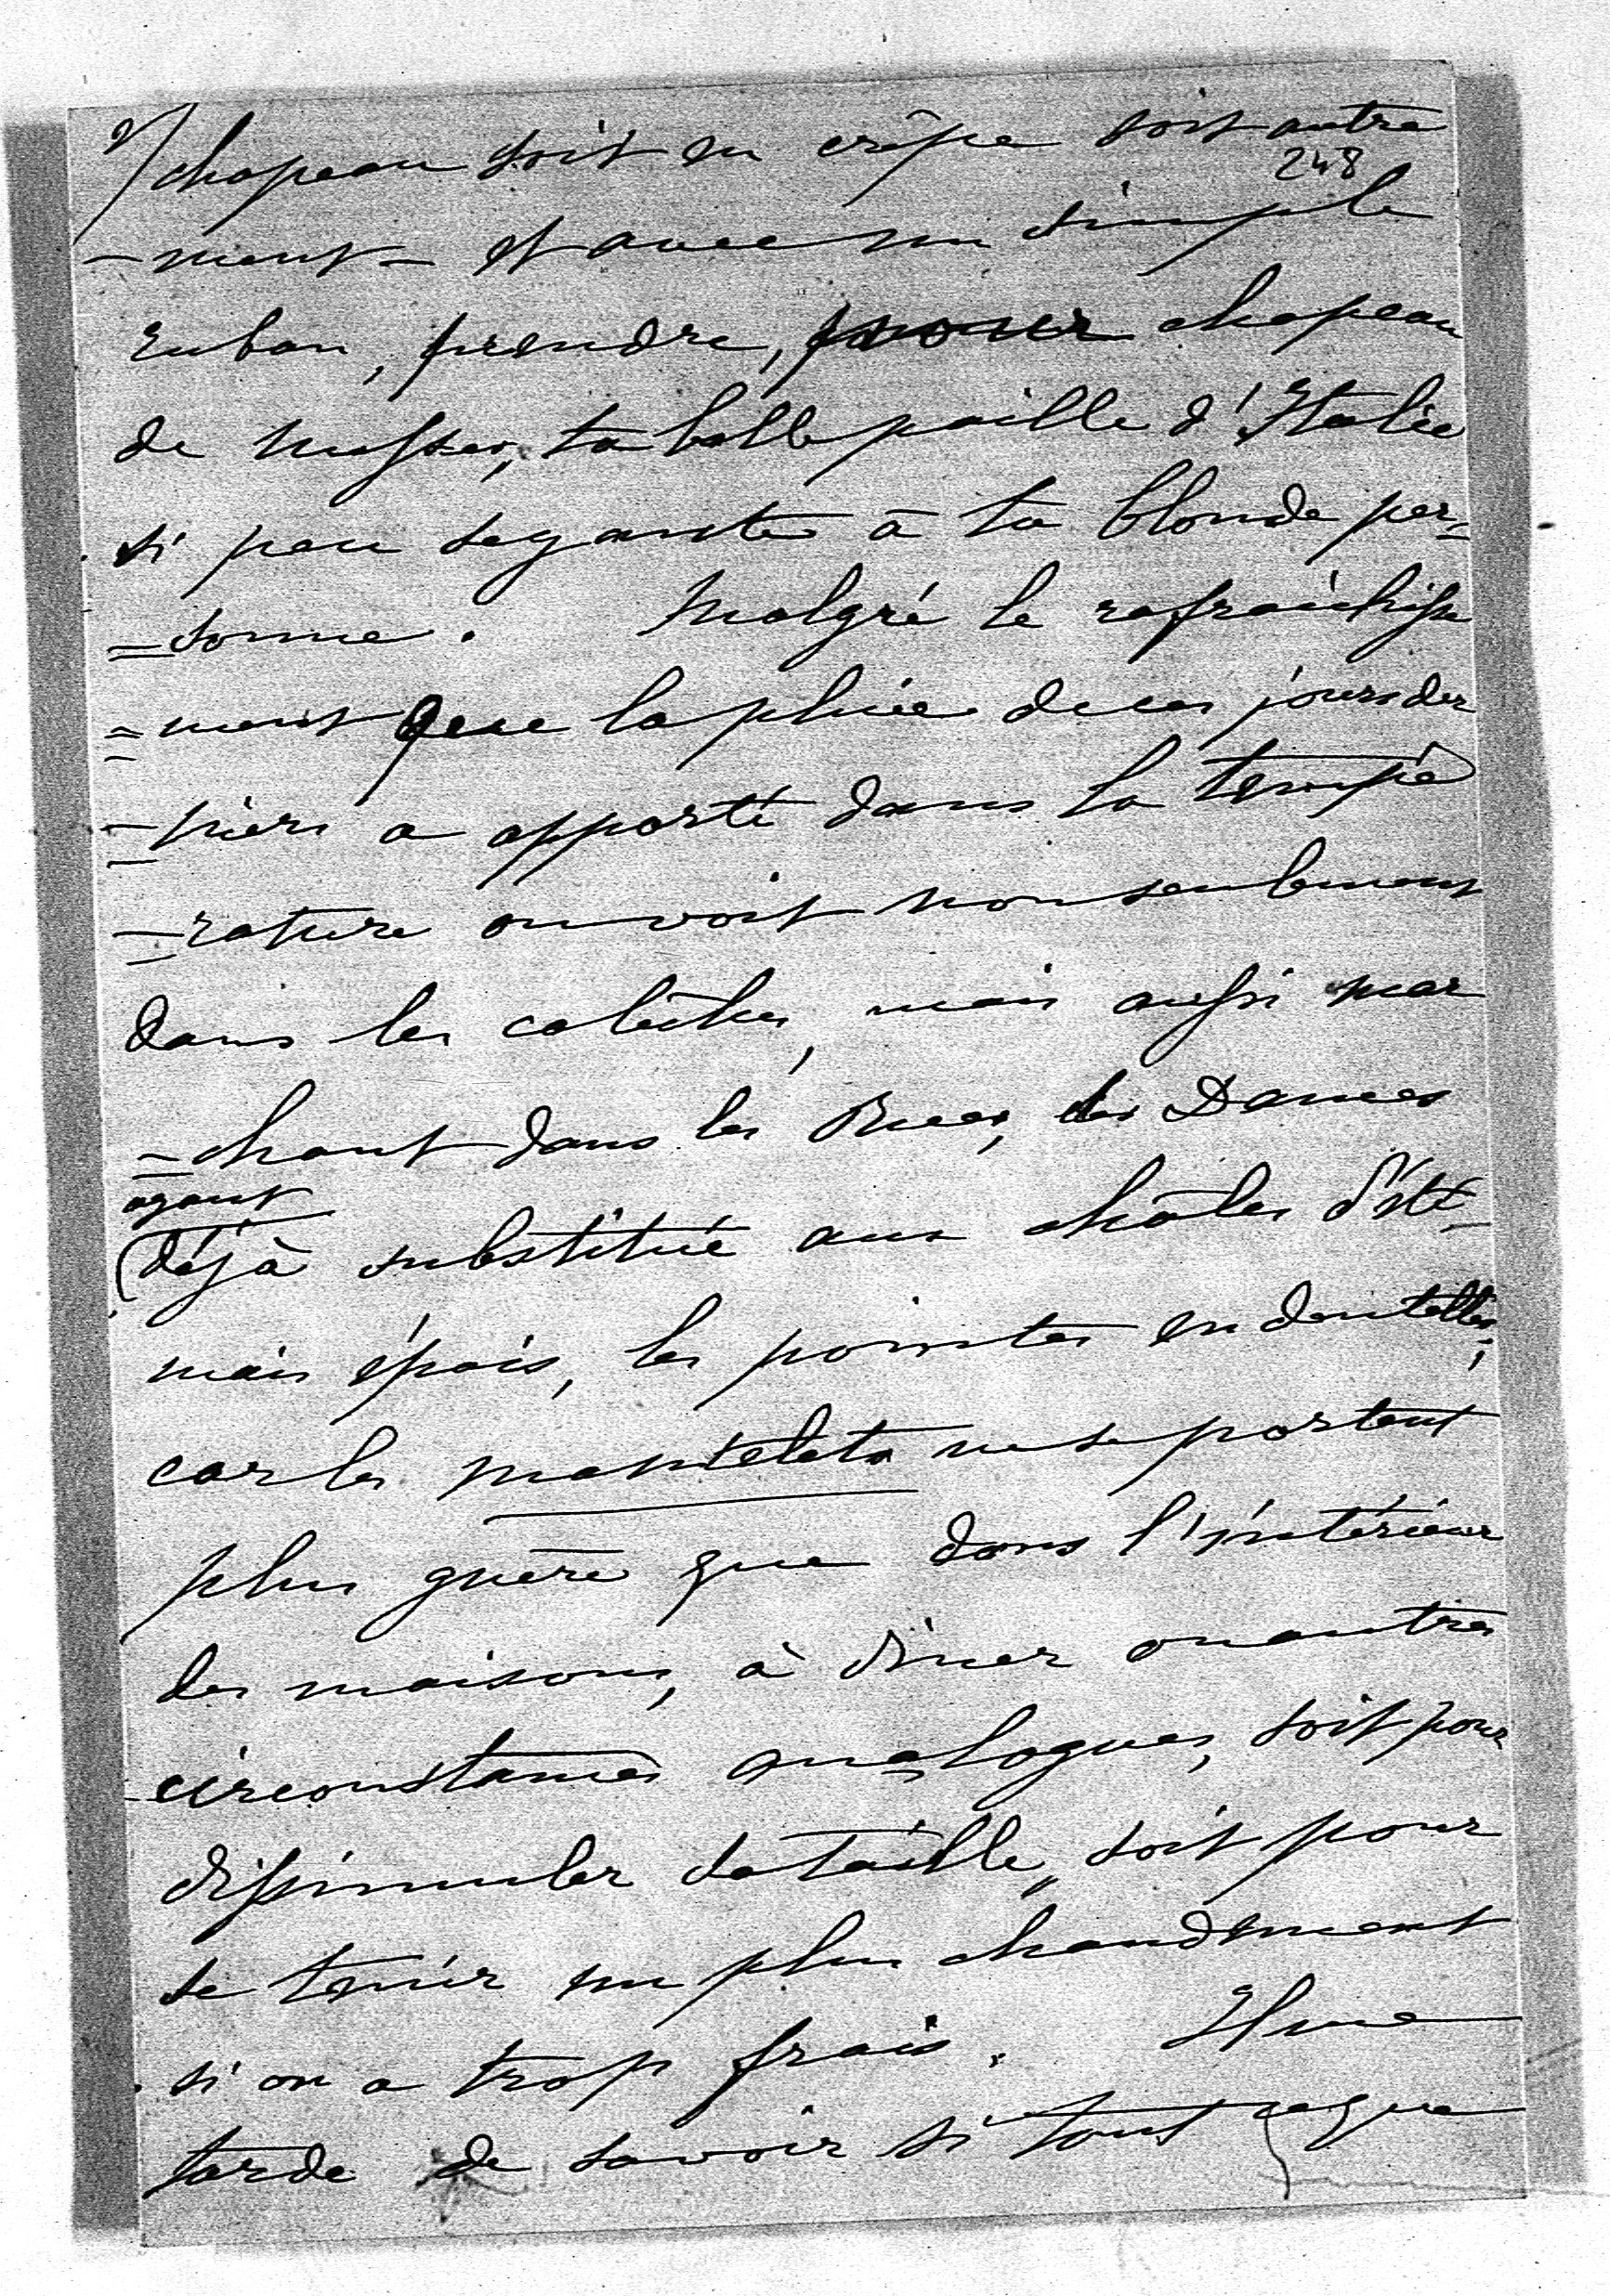 2/ chapeau soit en crêpe soit autre
248
- ment - et avec un simple
ruban, prendre, pour chapeau
de messe, ta belle paille d'Italie
si peu seyante à ta blonde per-
=sonne. Malgré le rafraichisse
=ment que la pluie de ces jours der
=niers a apporté dans la tempé
=rature on voit non seulement
dans les calèches, mais aussi mar
=chant dans les Rues, des Dames
ayant
(déjà substitué aux châles d'été-
mais épais, les pointes en dentelles,
car les mantelets ne se portent
plus guère que dans l'intérieur
des maisons, à diner ou autres
circonstances analogues, soit pour
dissimuler sa taille, soit pour
se tenir un plus chaudement
si on a trop frais. Il me
tarde de savoir si tout ce que